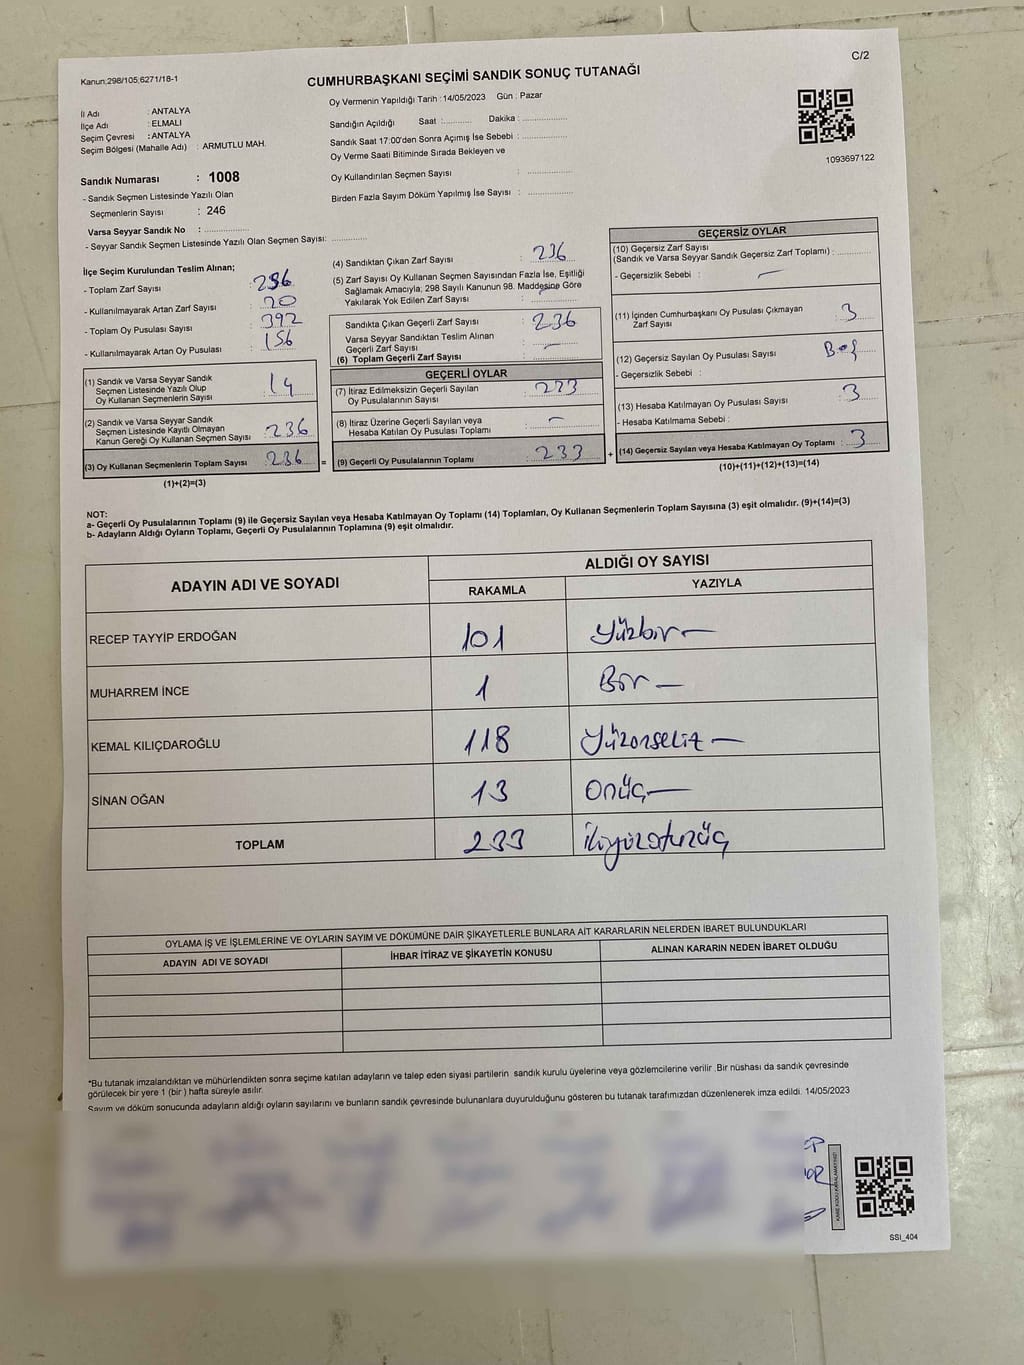 Kanun;298/105;6271/18-1
C/2
CUMHURBAŞKANI SEÇİMİ SANDIK SONUÇ TUTANAĞI
İl Adı : ANTALYA
İlçe Adı : ELMALI
Seçim Çevresi : ANTALYA
Seçim Bölgesi (Mahalle Adı) : ARMUTLU MAH.
Sandık Numarası : 1008
- Sandık Seçmen Listesinde Yazılı Olan
Seçmenlerin Sayısı : 246
Varsa Seyyar Sandık No :
- Seyyar Sandık Seçmen Listesinde Yazılı Olan Seçmen Sayısı:
Oy Vermenin Yapıldığı Tarih : 14/05/2023 Gün : Pazar
Sandığın Açıldığı Saat : Dakika :
Sandık Saat 17:00'den Sonra Açımış İse Sebebi :
Oy Verme Saati Bitiminde Sırada Bekleyen ve
Oy Kullandırılan Seçmen Sayısı :
Birden Fazla Sayım Döküm Yapılmış İse Sayısı :
1093697122
İlçe Seçim Kurulundan Teslim Alınan;
- Toplam Zarf Sayısı : 256
- Kullanılmayarak Artan Zarf Sayısı : 20
- Toplam Oy Pusulası Sayısı : 392
- Kullanılmayarak Artan Oy Pusulası : 156
(1) Sandık ve Varsa Seyyar Sandık
Seçmen Listesinde Yazılı Olup
Oy Kullanan Seçmenlerin Sayısı : 14
(2) Sandık ve Varsa Seyyar Sandık
Seçmen Listesinde Kayıtlı Olmayan
Kanun Gereği Oy Kullanan Seçmen Sayısı : 236
(3) Oy Kullanan Seçmenlerin Toplam Sayısı : 236 =
(1)+(2)=(3)
(4) Sandıktan Çıkan Zarf Sayısı : 236
(5) Zarf Sayısı Oy Kullanan Seçmen Sayısından Fazla İse, Eşitliği
Sağlamak Amacıyla; 298 Sayılı Kanunun 98. Maddesine Göre
Yakılarak Yok Edilen Zarf Sayısı :
Sandıkta Çıkan Geçerli Zarf Sayısı : 236
Varsa Seyyar Sandıktan Teslim Alınan
Geçerli Zarf Sayısı : -
(6) Toplam Geçerli Zarf Sayısı :
GEÇERLİ OYLAR
(7) İtiraz Edilmeksizin Geçerli Sayılan
Oy Pusulalarının Sayısı : 233
(8) İtiraz Üzerine Geçerli Sayılan veya
Hesaba Katılan Oy Pusulası Toplamı : -
(9) Geçerli Oy Pusulalarının Toplamı : 233 +
GEÇERSİZ OYLAR
(10) Geçersiz Zarf Sayısı
(Sandık ve Varsa Seyyar Sandık Geçersiz Zarf Toplamı) :
- Geçersizlik Sebebi : -
(11) İçinden Cumhurbaşkanı Oy Pusulası Çıkmayan
Zarf Sayısı : 3
(12) Geçersiz Sayılan Oy Pusulası Sayısı : Boş
- Geçersizlik Sebebi :
(13) Hesaba Katılmayan Oy Pusulası Sayısı : 3
- Hesaba Katılmama Sebebi :
(14) Geçersiz Sayılan veya Hesaba Katılmayan Oy Toplamı : 3
(10)+(11)+(12)+(13)=(14)
NOT:
a- Geçerli Oy Pusulalarının Toplamı (9) ile Geçersiz Sayılan veya Hesaba Katılmayan Oy Toplamı (14) Toplamları, Oy Kullanan Seçmenlerin Toplam Sayısına (3) eşit olmalıdır. (9)+(14)=(3)
b- Adayların Aldığı Oyların Toplamı, Geçerli Oy Pusulalarının Toplamına (9) eşit olmalıdır.
ADAYIN ADI VE SOYADI
ALDIĞI OY SAYISI
RAKAMLA YAZIYLA
RECEP TAYYİP ERDOĞAN 101 Yüzbir
MUHARREM İNCE 1 Bir
KEMAL KILIÇDAROĞLU 118 Yüzonsekiz
SİNAN OĞAN 13 Onüç
TOPLAM 233 ikiyüzotuzüç
OYLAMA İŞ VE İŞLEMLERİNE VE OYLARIN SAYIM VE DÖKÜMÜNE DAİR ŞİKAYETLERLE BUNLARA AİT KARARLARIN NELERDEN İBARET BULUNDUKLARI
ADAYIN ADI VE SOYADI İHBAR İTİRAZ VE ŞİKAYETİN KONUSU ALINAN KARARIN NEDEN İBARET OLDUĞU
*Bu tutanak imzalandıktan ve mühürlendikten sonra seçime katılan adayların ve talep eden siyasi partilerin sandık kurulu üyelerine veya gözlemcilerine verilir .Bir nüshası da sandık çevresinde
görülecek bir yere 1 (bir ) hafta süreyle asılır.
Sayım ve döküm sonucunda adayların aldığı oyların sayılarını ve bunların sandık çevresinde bulunanlara duyurulduğunu gösteren bu tutanak tarafımızdan düzenlenerek imza edildi. 14/05/2023
KARE KODU KARALAMAYINIZ!
SSI_404